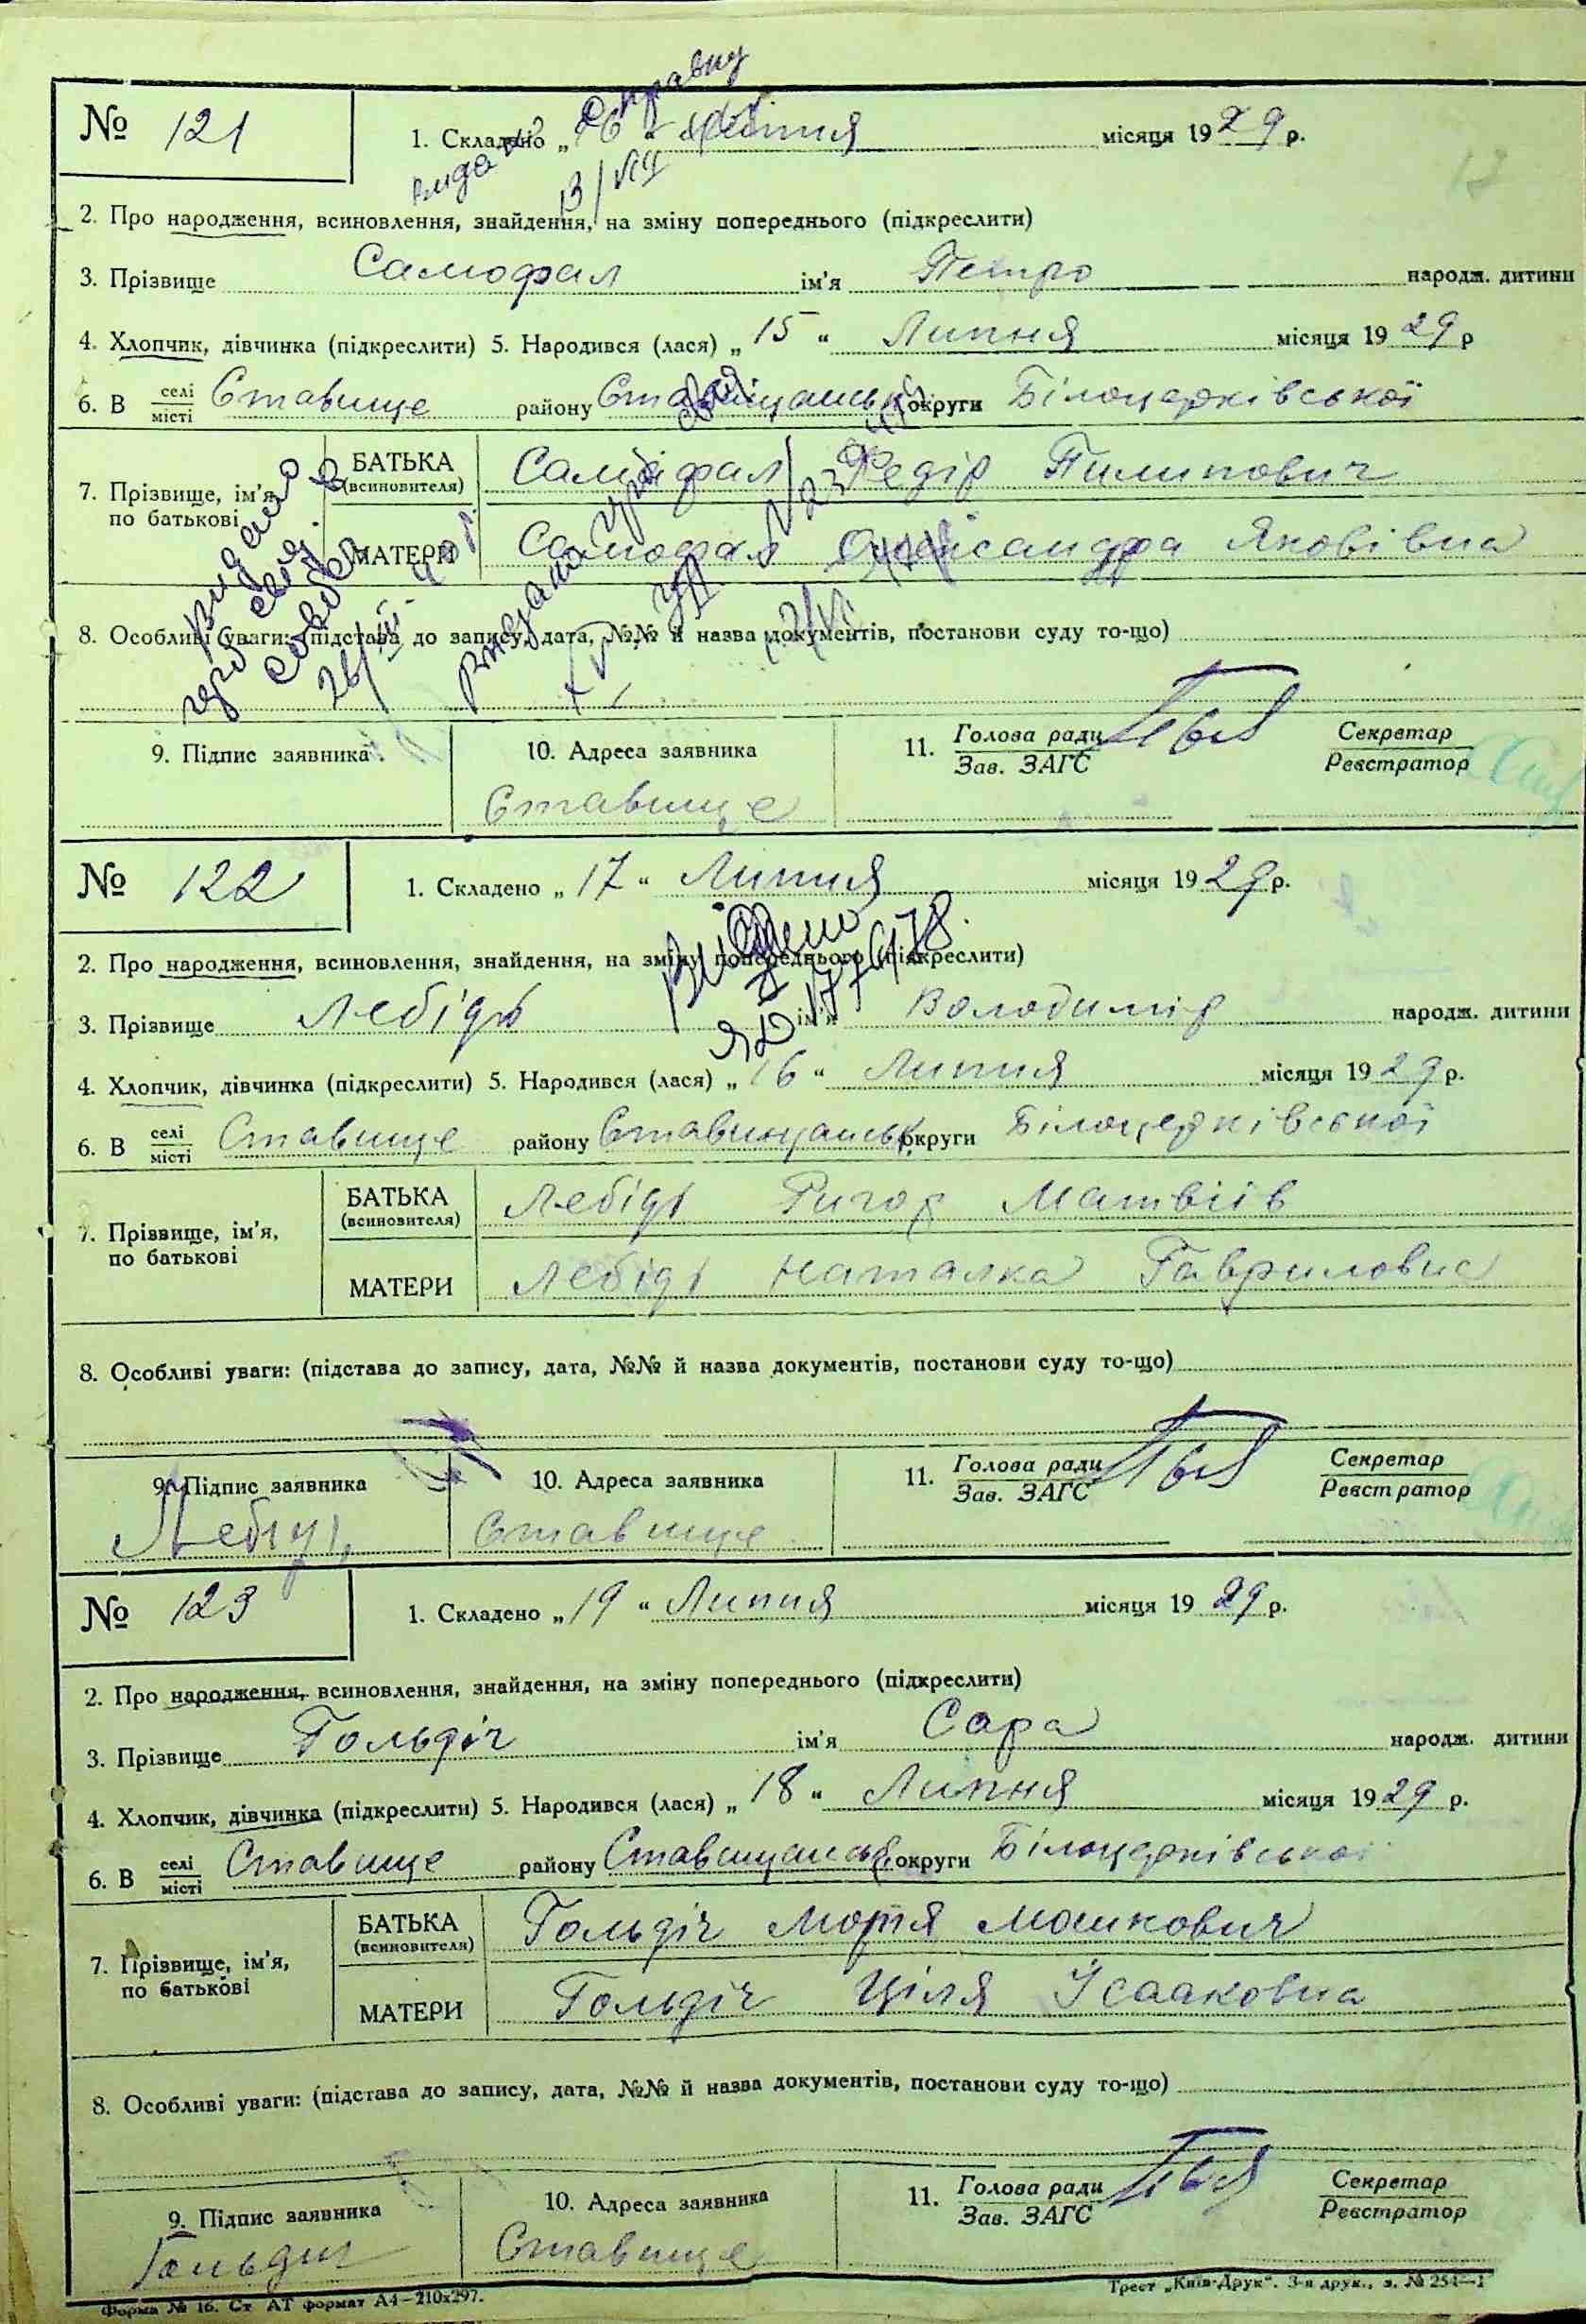 № 121
1. Складено „16“ Липня місяця 1929 р.
видано справку
13/VII
2. Про народження, всиновлення, знайдення, на зміну попереднього (підкреслити)
3. Прізвище Самофал ім'я Петро народж. дитини
4. Хлопчик, дівчинка (підкреслити) 5. Народився (лася) „15“ Липня місяця 1929 р
6. В селі/місті Ставище району Ставищанськ округи Білоцерківської
7. Прізвище, ім'я, по батькові
БАТЬКА (всиновителя) Самофал Федір Пилипович
МАТЕРИ Самофал Олександра Яковівна
8. Особливі уваги: (підстава до запису, дата, №№ й назва документів, постанови суду то-що)
видано
9. Підпис заявника
10. Адреса заявника
Ставище
11. Голова ради / Зав. ЗАГС
Секретар / Реєстратор
№ 122
1. Складено „17“ Липня місяця 1929 р.
2. Про народження, всиновлення, знайдення, на зміну попереднього (підкреслити)
3. Прізвище Лебідь ім'я Володимір народж. дитини
4. Хлопчик, дівчинка (підкреслити) 5. Народився (лася) „16“ Липня місяця 1929 р.
6. В селі/місті Ставище району Ставищанськ округи Білоцерківської
7. Прізвище, ім'я, по батькові
БАТЬКА (всиновителя) Лебідь Ригор Матвіів
МАТЕРИ Лебідь Наталка Гавриловна
8. Особливі уваги: (підстава до запису, дата, №№ й назва документів, постанови суду то-що)
9. Підпис заявника
Лебідь
10. Адреса заявника
Ставище
11. Голова ради / Зав. ЗАГС
Секретар / Реєстратор
№ 123
1. Складено „19“ Липня місяця 1929 р.
2. Про народження, всиновлення, знайдення, на зміну попереднього (підкреслити)
3. Прізвище Гольдіч ім'я Сара народж. дитини
4. Хлопчик, дівчинка (підкреслити) 5. Народився (лася) „18“ Липня місяця 1929 р.
6. В селі/місті Ставище району Ставищанськ округи Білоцерківської
7. Прізвище, ім'я, по батькові
БАТЬКА (всиновителя) Гольдіч Мотя Мошкович
МАТЕРИ Гольдіч Ціля Ісааковна
8. Особливі уваги: (підстава до запису, дата, №№ й назва документів, постанови суду то-що)
9. Підпис заявника
Гольдич
10. Адреса заявника
Ставище
11. Голова ради / Зав. ЗАГС
Секретар / Реєстратор
Форма № 16. Ст АТ формат А4—210x297.
Трест „Київ-Друк“. 3-я друк., з. № 254—1